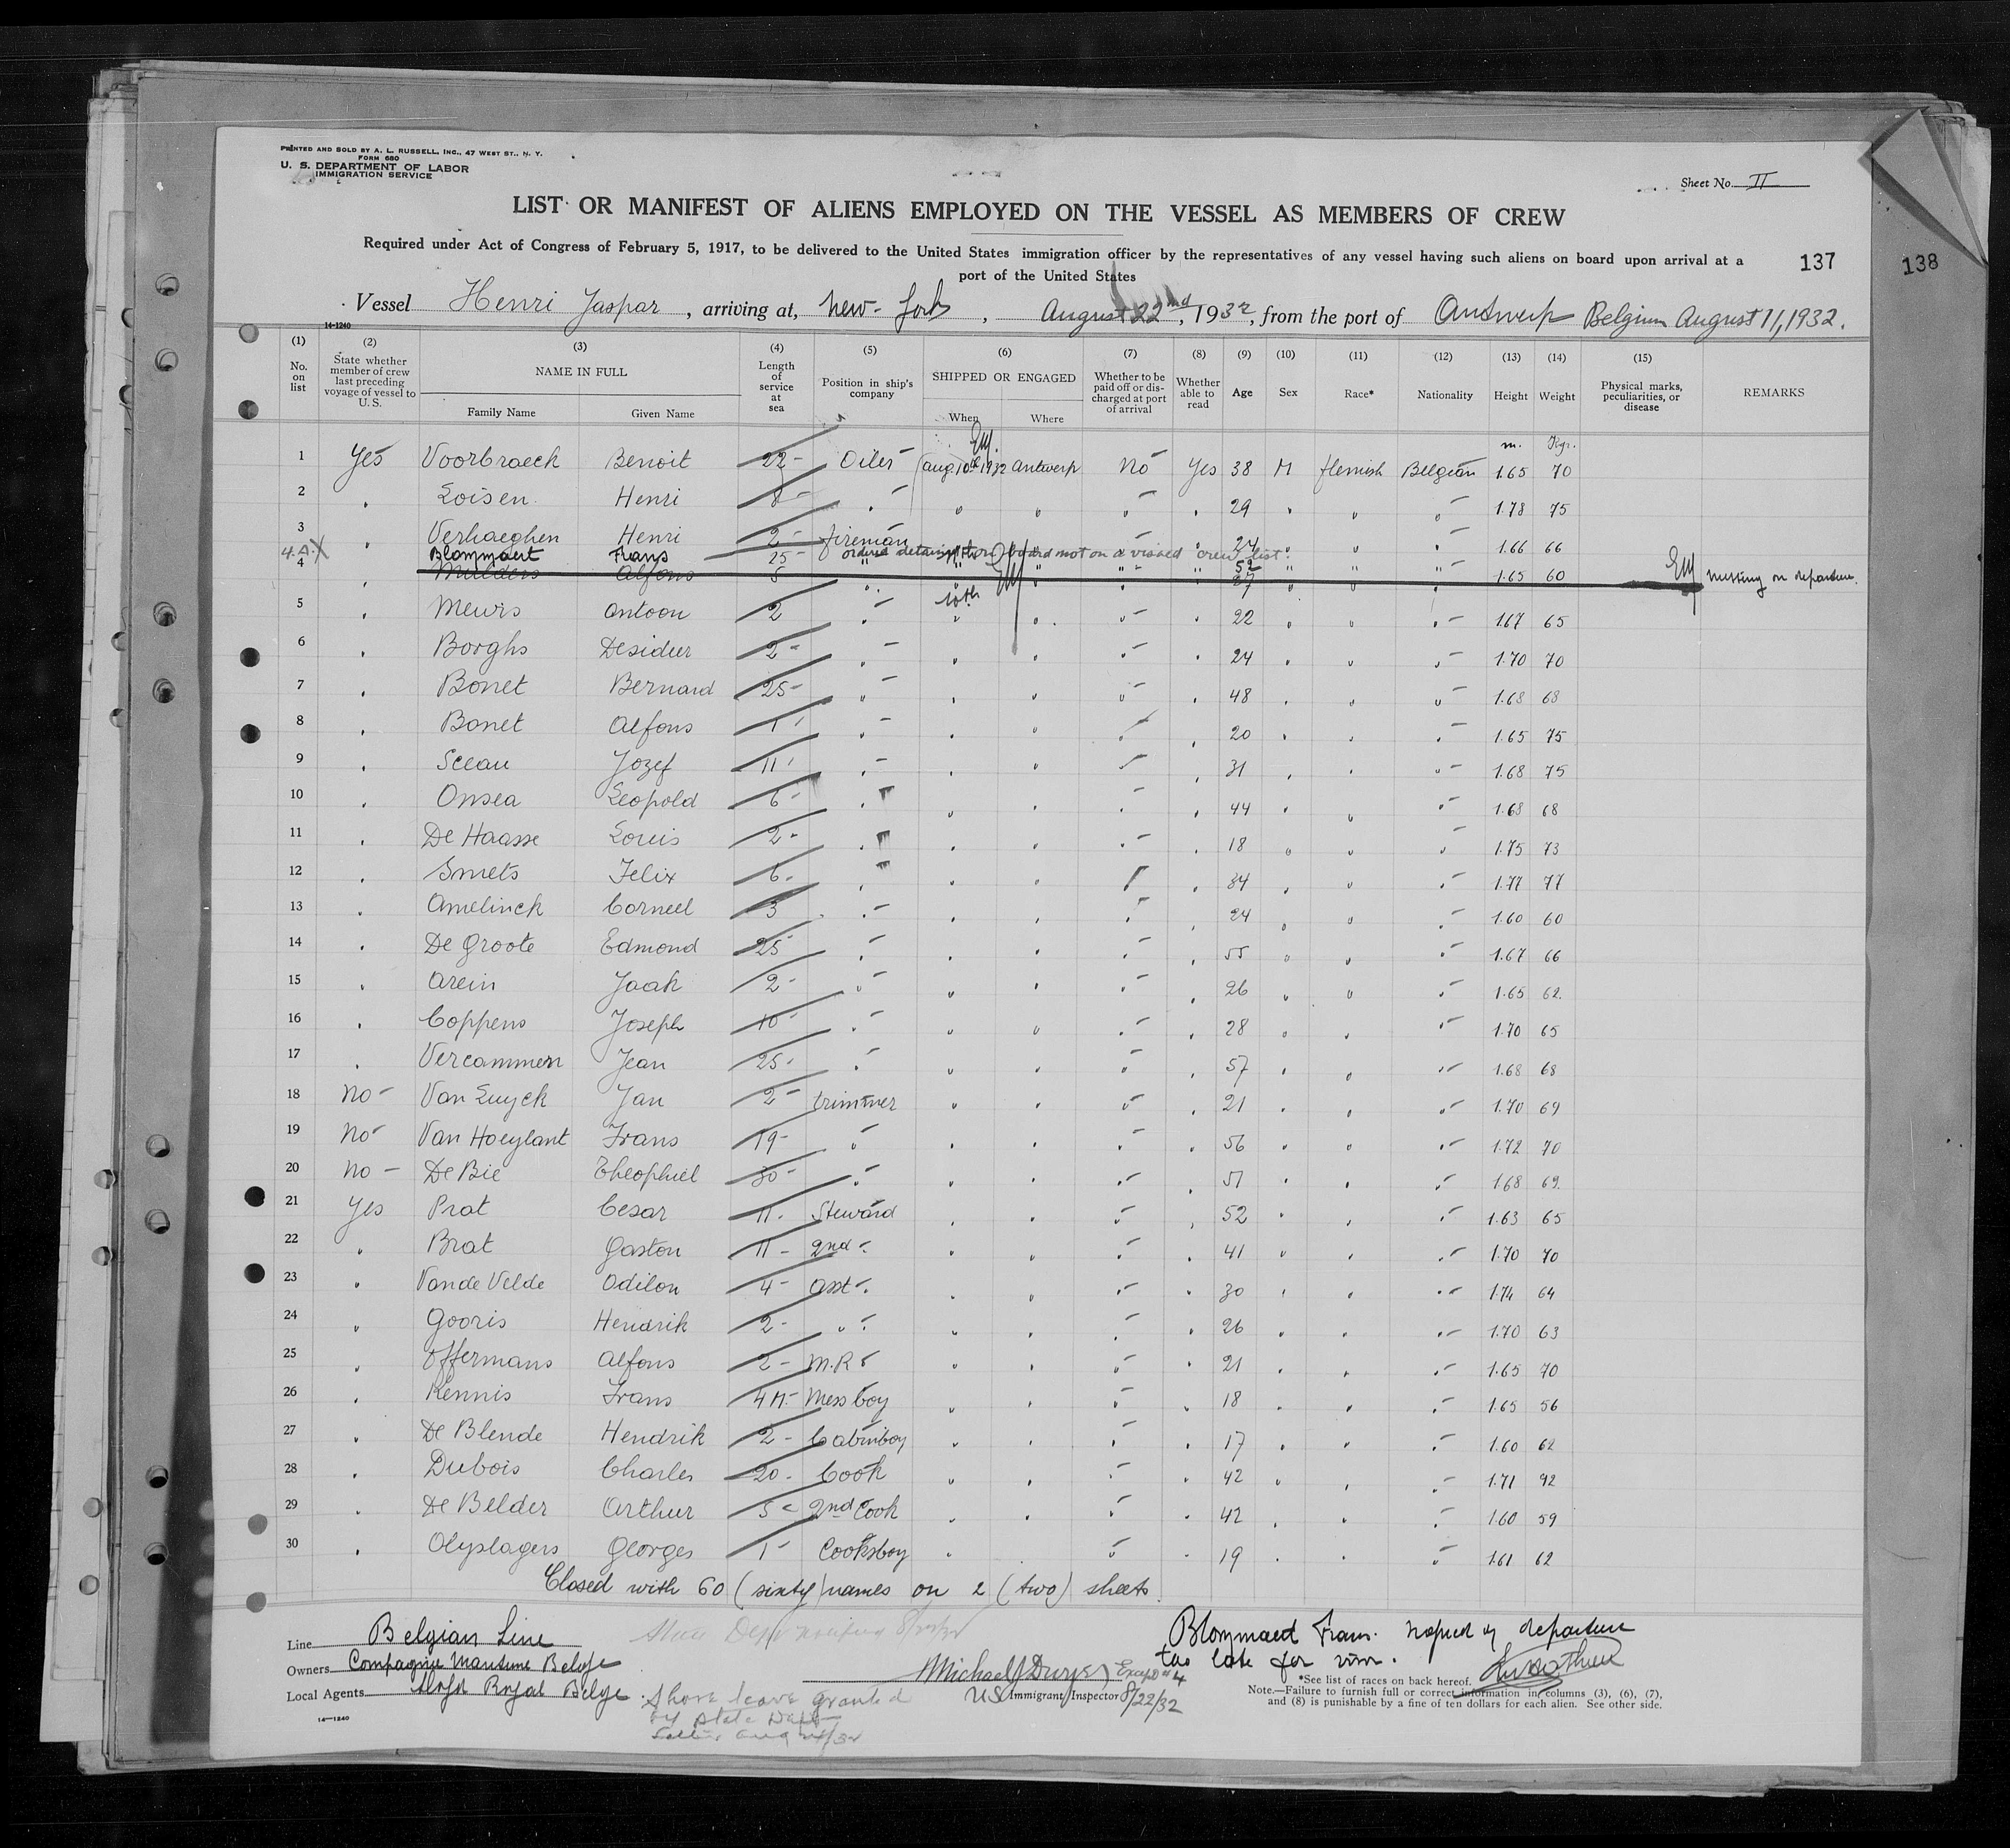 PRINTED AND SOLD BY A. L. RUSSELL, INC., 47 WEST ST., N. Y.
FORM 680
U. S. DEPARTMENT OF LABOR
IMMIGRATION SERVICE
Sheet No. II
LIST OR MANIFEST OF ALIENS EMPLOYED ON THE VESSEL AS MEMBERS OF CREW
Required under Act of Congress of February 5, 1917, to be delivered to the United States immigration officer by the representatives of any vessel having such aliens on board upon arrival at a
port of the United States
137
138
Vessel Henri Jaspar, arriving at, New-York, August 22nd, 1932, from the port of Antwerp Belgium August 11, 1932.
14-1240
(1) (2) (3) (4) (5) (6) (7) (8) (9) (10) (11) (12) (13) (14) (15)
No. on list State whether member of crew last preceding voyage of vessel to U.S. NAME IN FULL Length of service at sea Position in ship's company SHIPPED OR ENGAGED Whether to be paid off or discharged at port of arrival Whether able to read Age Sex Race* Nationality Height Weight Physical marks, peculiarities, or disease REMARKS
Family Name Given Name When Where
m. Kgr.
1 Yes Voorbraeck Benoit 22- Oiler Aug 10th 1932 Antwerp No Yes 38 M flemish Belgian 1.65 70
2 " Loisen Henri 8- " " " " " 29 " " " 1.78 75
3 " Verhaeghen Henri 2- fireman " " " " 24 " " " 1.66 66
4.A.X Blommaert Frans 25- " ordered detained on board not on a visaed crew list. 52 " " "
4 " Mulders Alfons 5 " " " " " 27 " " " 1.65 60 missing on departure.
5 " Mewis Antoon 2 " 10th " " " 22 " " " 1.67 65
6 " Borghs Desideer 2- " " " " " 24 " " " 1.70 70
7 " Bonet Bernard 25- " " " " " 48 " " " 1.68 68
8 " Bonet Alfons 1 " " " " " 20 " " " 1.65 75
9 " Sceau Jozef 11 " " " " " 31 " " " 1.68 75
10 " Onsea Leopold 6- " " " " " 44 " " " 1.68 68
11 " De Haasse Louis 2- " " " " " 18 " " " 1.75 73
12 " Smets Felix 6- " " " " " 34 " " " 1.77 77
13 " Amelinck Corneel 3 " " " " " 24 " " " 1.60 60
14 " De Groote Edmond 25 " " " " " 55 " " " 1.67 66
15 " Arein Jaak 2- " " " " " 26 " " " 1.65 62.
16 " Coppens Joseph 10- " " " " " 28 " " " 1.70 65
17 " Vercammen Jean 25- " " " " " 57 " " " 1.68 68
18 No- Van Luyck Jan 2- trimmer " " " " 21 " " " 1.70 69
19 No- Van Hoeylant Frans 19- " " " " " 56 " " " 1.72 70
20 No- De Bie Theophiel 30- " " " " " 51 " " " 1.68 69.
21 Yes Prat Cesar 11. Steward " " " " 52 " " " 1.63 65
22 " Brat Gaston 11- 2nd " " " " " 41 " " " 1.70 70
23 " Van de Velde Odilon 4- asst " " " " " 30 " " " 1.74 64
24 " Gooris Hendrik 2- " " " " " " 26 " " " 1.70 63
25 " Offermans Alfons 2- M.R " " " " " 21 " " " 1.65 70
26 " Kennis Frans 4M- Messboy " " " " 18 " " " 1.65 56
27 " De Blende Hendrik 2- Cabinboy " " " " 17 " " " 1.60 62
28 " Dubois Charles 20- Cook " " " " 42 " " " 1.71 92
29 " De Belder Arthur 5- 2nd Cook " " " " 42 " " " 1.60 59
30 " Olyslagers Georges 1- Cooksboy " " " " 19 " " " 1.61 62
Closed with 60 (sixty) names on 2 (two) sheets.
Line Belgian Line
Owners Compagnie Maritime Belge
Local Agents Lloyd Royal Belge
State Dept notified 8/22/32
Shore leave granted
by State Dept
Michael J Dwyer Except #4
US Immigrant Inspector 8/22/32
Blommaert Frans. departure
too late for visa.
*See list of races on back hereof.
Note.—Failure to furnish full or correct information in columns (3), (6), (7),
and (8) is punishable by a fine of ten dollars for each alien. See other side.
14-1240